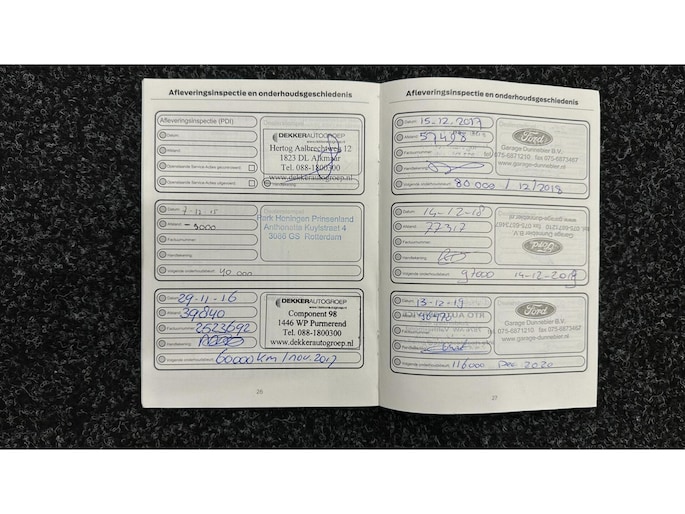 Afleveringsinspectie en onderhoudsgeschiedenis
Afleveringsinspectie (PDI)
Datum
Afstand
Handtekening
DEKKERAUTOGROEP
Hertog Aalbrechtweg 12
1823 DL Alkmaar
Tel. 088-1800300
www.dekkerautogroep.nl
Datum 7-12-15
Afstand
Factuurnummer
Handtekening
Volgende onderhoudsbeurt 40.000
Park Honingen Prinsenland
Anthonetta Kuylstraat 4
3066 GS Rotterdam
Datum 29-11-16
Afstand 39840
Factuurnummer 2523692
Handtekening
Volgende onderhoudsbeurt 60000 km / nov. 2017
DEKKERAUTOGROEP
Component 98
1446 WP Purmerend
Tel. 088-1800300
www.dekkerautogroep.nl
26
Afleveringsinspectie en onderhoudsgeschiedenis
Datum 15-12-2017
Afstand 57498
Factuurnummer
Handtekening
Volgende onderhoudsbeurt 80.000 / 12/2018
Ford
Garage Dunnebier B.V.
tel 075-6871210 fax 075-6873467
www.garage-dunnebier.nl
Datum 14-12-18
Afstand 77317
Factuurnummer
Handtekening
Volgende onderhoudsbeurt 97000 14-12-2019
Ford
Garage Dunnebier B.V.
tel 075-6871210 fax 075-6873467
www.garage-dunnebier.nl
Datum 13-12-19
Afstand
Factuurnummer
Volgende onderhoudsbeurt 116000 Dec 2020
Ford
Garage Dunnebier B.V.
tel 075-6871210 fax 075-6873467
www.garage-dunnebier.nl
27